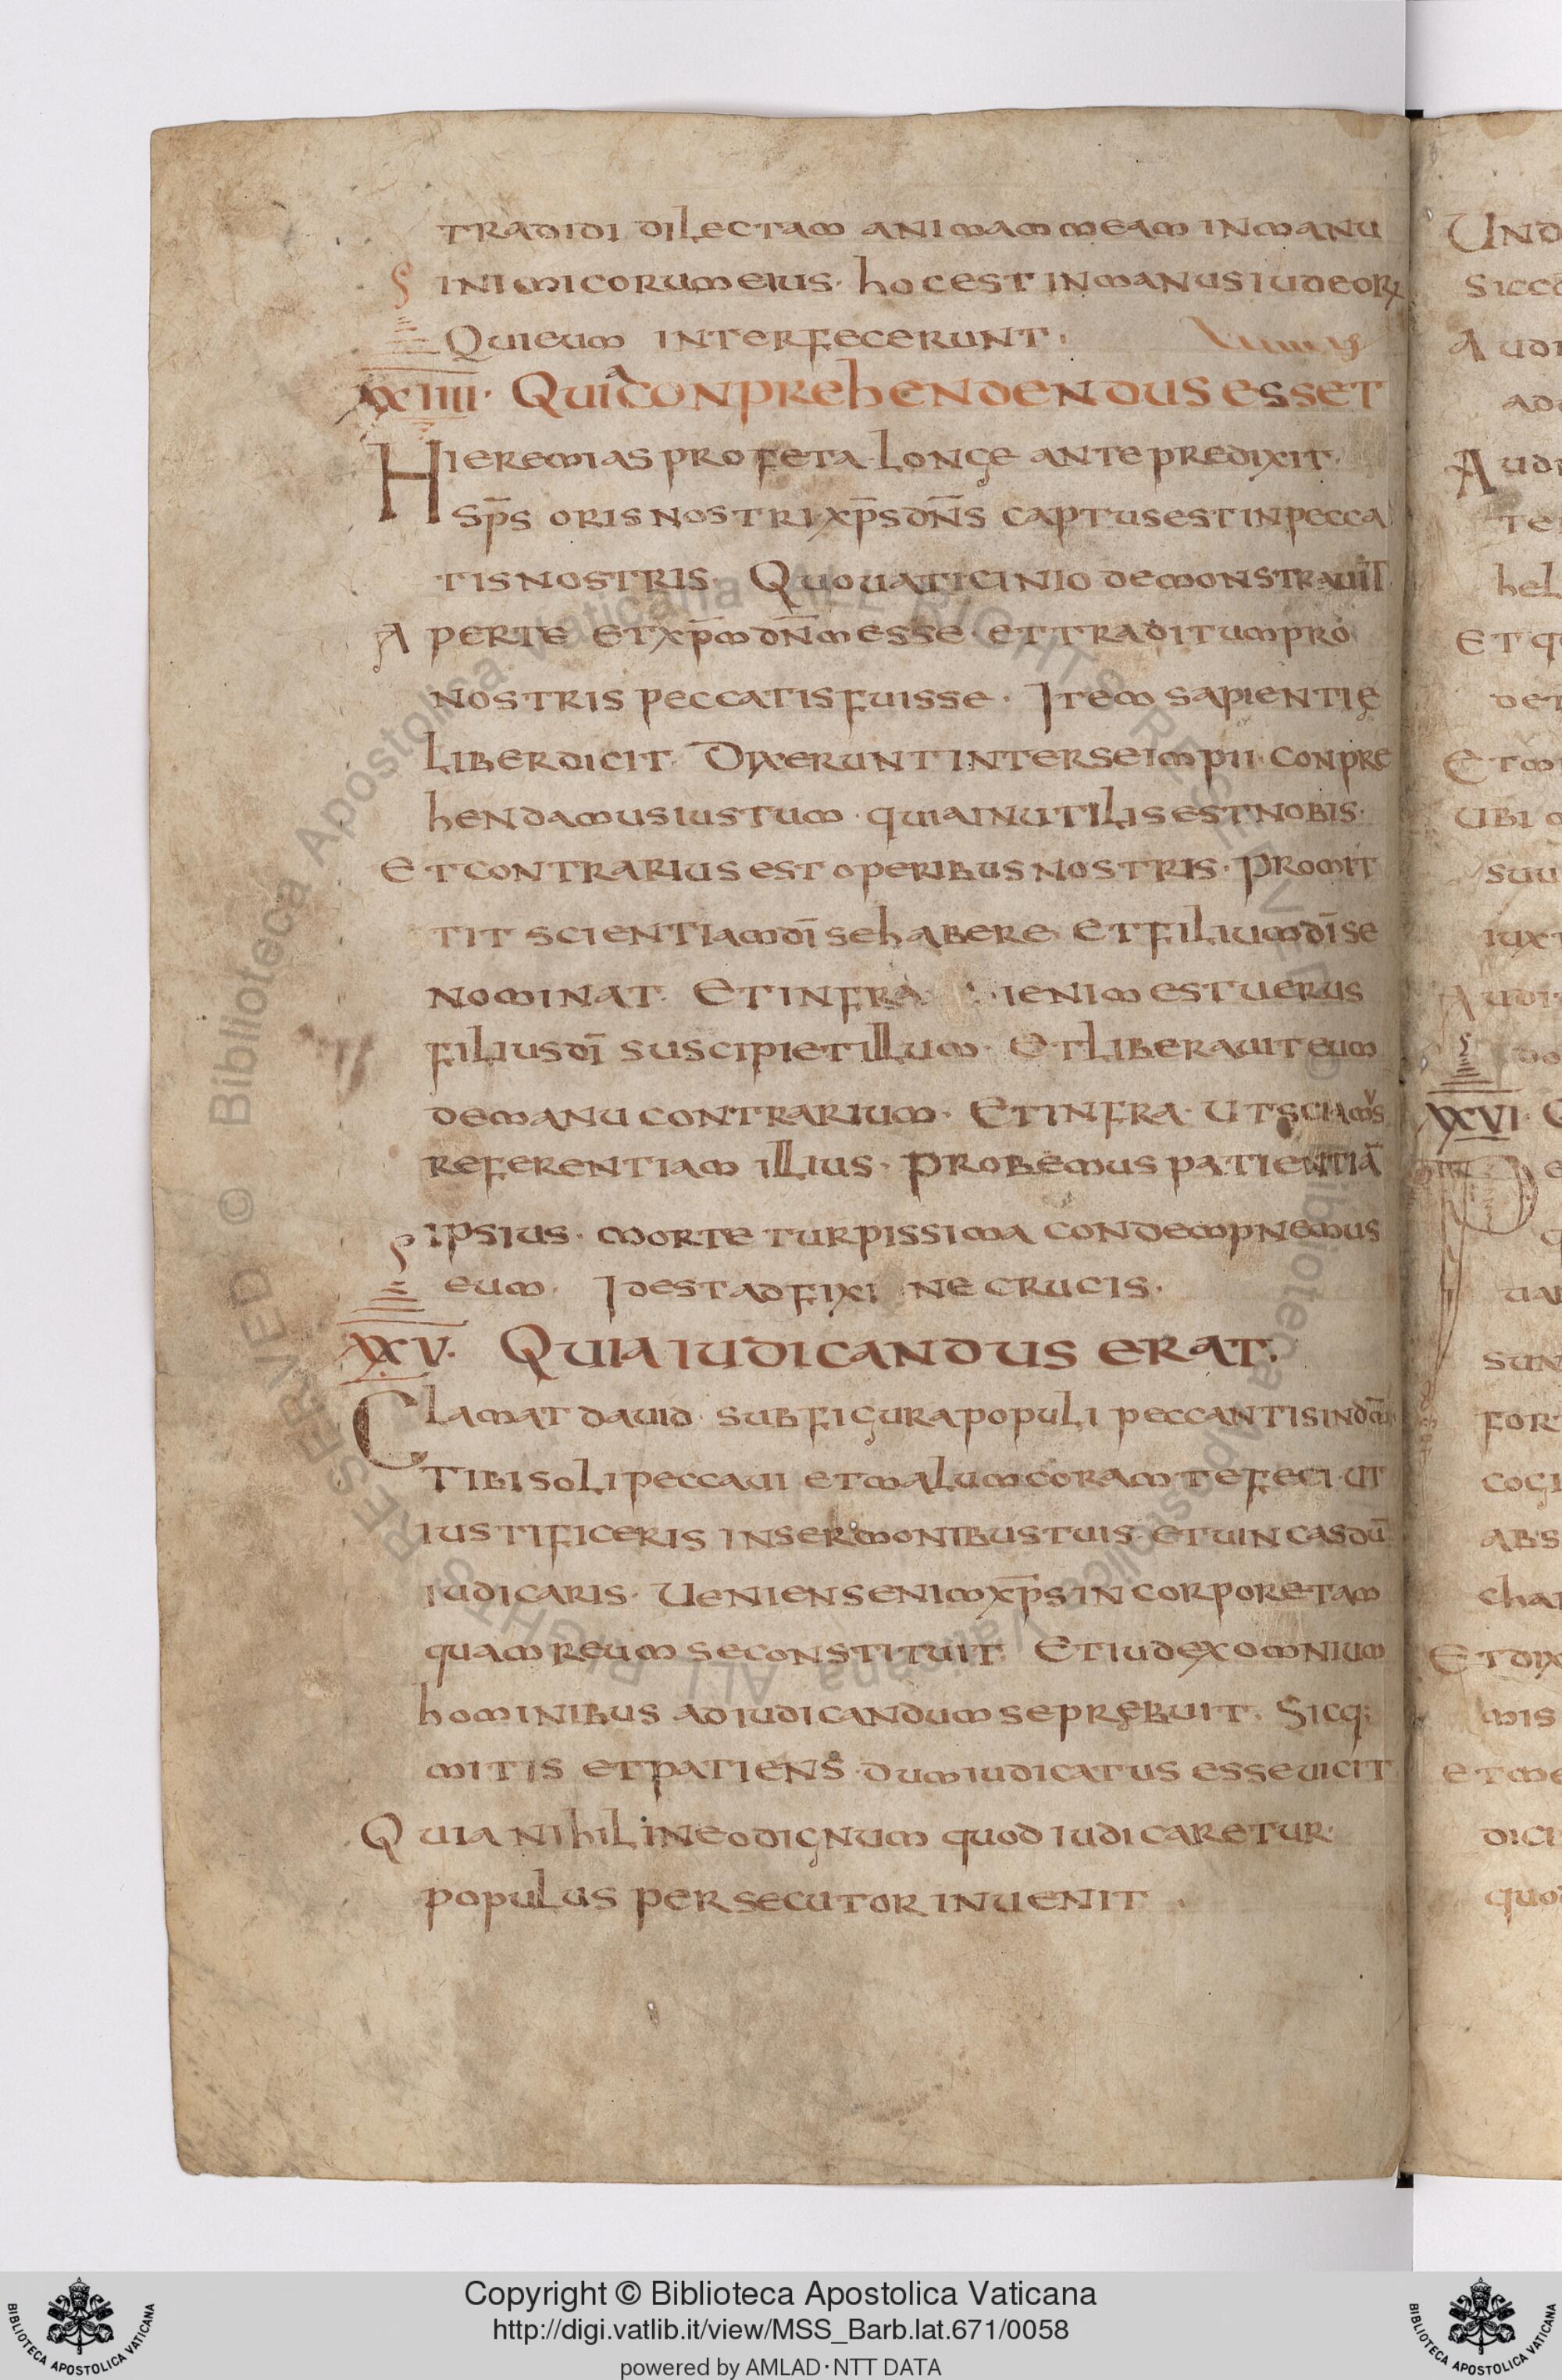 tradidi dilectam animam meam in manu
inimicorum eius · hoc est in manus iudeorꝝ
Qui eum interfecerunt ·
XXIIII · Quia conprehendendus esset
Hieremias profeta · longe ante predixit ·
Sp̄s oris nostri xp̄s dn̄s captus est in pecca
tis nostris · Quo uaticinio demonstrauit
Aperte et xp̄m dn̄m esse · et traditum pro
nostris peccatis fuisse · Item sapientię
liber dicit · Dixerunt inter se impii · conpre
hendamus iustum · quia inutilis est nobis ·
Et contrarius est operibus nostris · Promit
tit scientiam dī se habere Et filium dī se
nominat · Et infra · enim est uerus
filius dī suscipiet illum · Et liberauit eum
de manu contrarium · Et infra · Ut sciamus
referentiam illius · Probemus patientiā
ipsius · morte turpissima condempnemus
eum · Id est adfixione crucis ·
XXV · Quia iudicandus erat ·
Clamat dauid · sub figura populi peccantis in dm̄
Tibi soli peccaui et malum coram te feci · ut
iustificeris in sermonibus tuis · et uincas dū
iudicaris · Ueniens enim xp̄s in corpore tam
quam reum se constituit · Et iudex omnium
hominibus ad iudicandum se prębuit · Sicq;
mitis et patiens · dum iudicatus esse uicit
Quia nihil in eo dignum quod iudicaretur ·
populus persecutor inuenit ·
XXVI ·
© Biblioteca Apostolica Vaticana ALL RIGHTS RESERVED
© Biblioteca Apostolica Vaticana ALL RIGHTS RESERVED
Copyright © Biblioteca Apostolica Vaticana
http://digi.vatlib.it/view/MSS_Barb.lat.671/0058
powered by AMLAD · NTT DATA
BIBLIOTECA APOSTOLICA VATICANA
BIBLIOTECA APOSTOLICA VATICANA